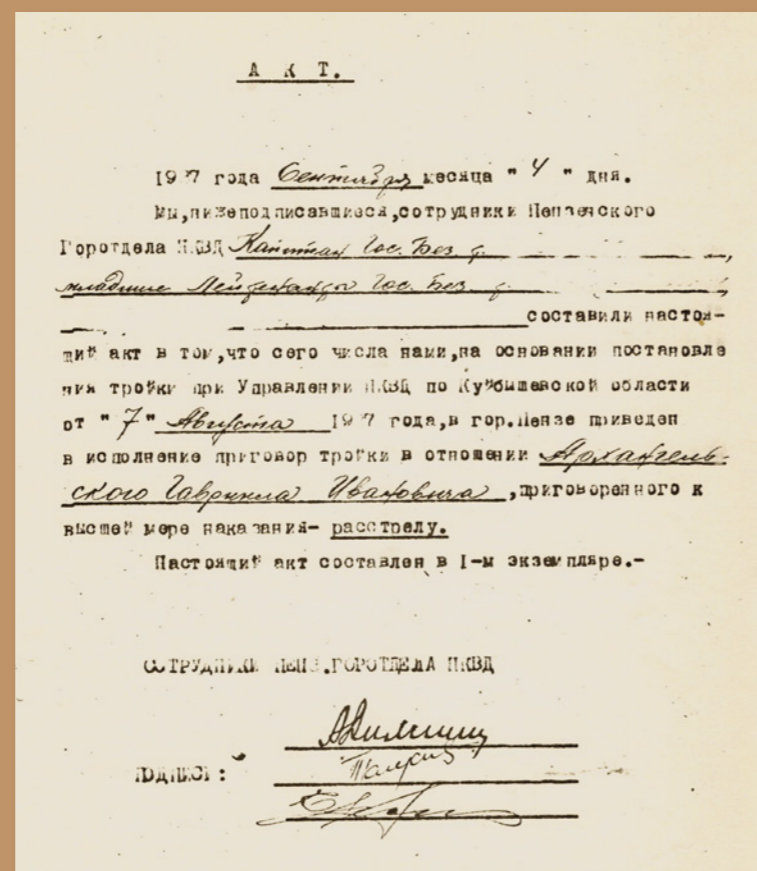 А К Т.
19 7 года Сентября месяца " 4 " дня.
Мы,нижеподписавшиеся,сотрудники Пензенского
Горотдела НКВД Капитан Гос. Без.
младшие Лейтенанты Гос. Без.
составили настоя-
щий акт в том,что сего числа нами,на основании постановле
ния тройки при Управлении НКВД по Куйбышевской области
от "7" Августа 19 7 года,в гор.Пензе приведен
в исполнение приговор тройки в отношении Архангель-
ского Гавриила Ивановича ,приговоренного к
высшей мере наказания- расстрелу.
Настоящий акт составлен в I-м экземпляре.-
СОТРУДНИКИ ПЕНЗ.ГОРОТДЕЛА НКВД
ПОДПИСИ: